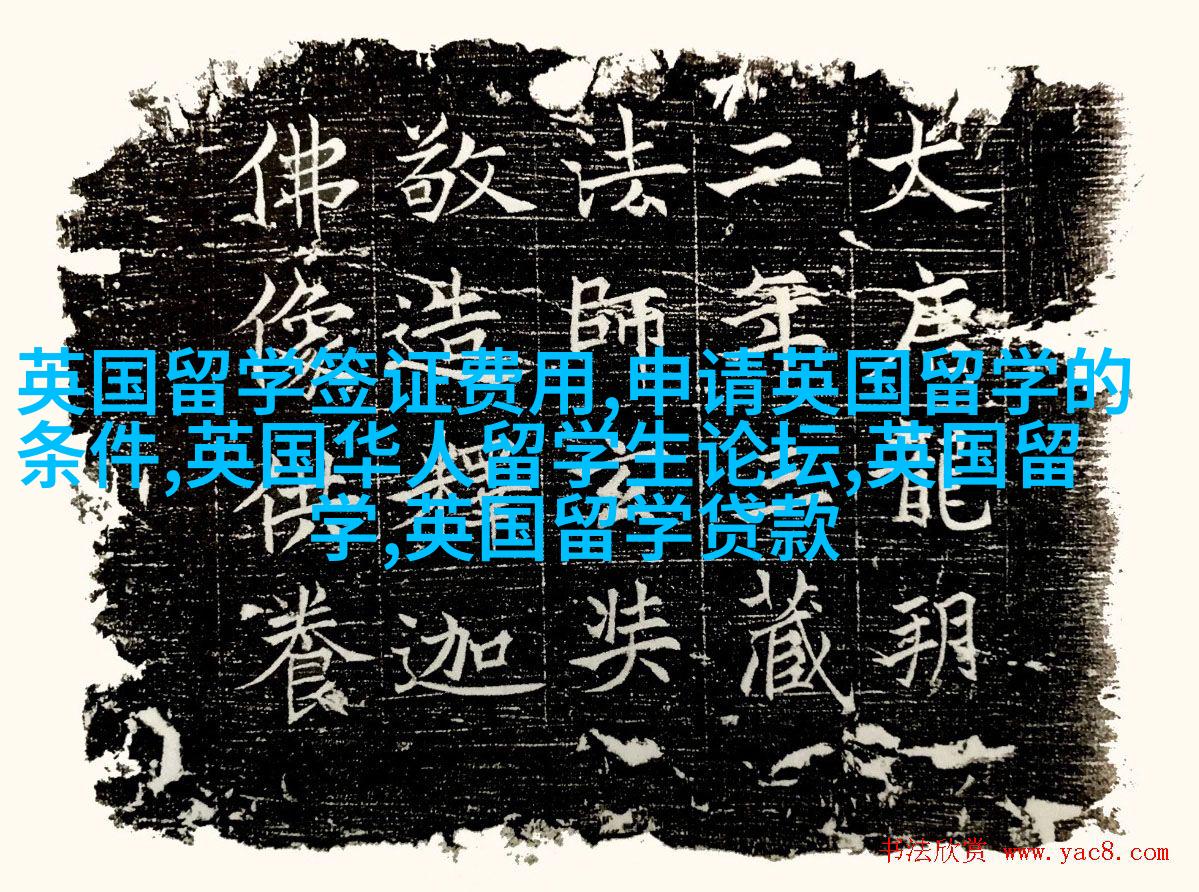 大唐龍朔
二年三藏
法師玄奘
敬造釋迦
佛像供養
英国留学签证费用,申请英国留学的
条件,英国华人留学生论坛,英国留
学,英国留学贷款
书法欣赏 www.yac8.com